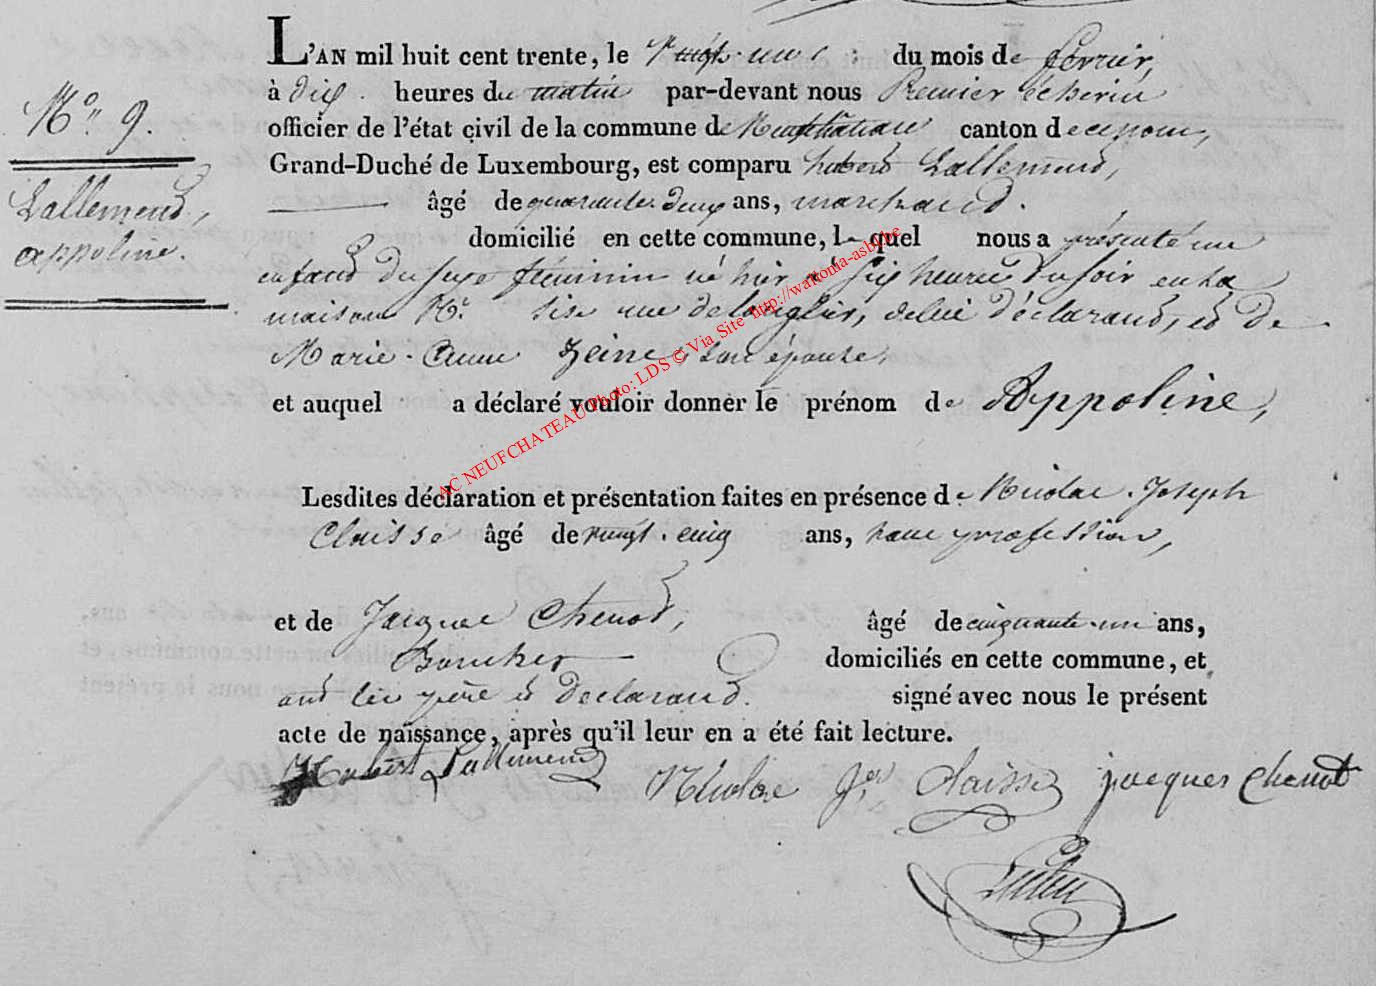 L'AN mil huit cent trente, le vingt-un du mois de février,
à dix heures du matin par-devant nous Premier Echevin
officier de l'état civil de la commune de Neufchateau canton de ce nom,
Grand-Duché de Luxembourg, est comparu hubert Lallemend,
âgé de quarante deux ans, marchand.
domicilié en cette commune, lequel nous a présenté un
enfand du sexe féminin né hier à six heures du soir en sa
maison N.° sise rue de longlier, de lui déclarand, et de
Marie-Anne Zeine, son épouse,
et auquel a déclaré vouloir donner le prénom de Appoline,
Lesdites déclaration et présentation faites en présence de Nicolas-Joseph
Claisse âgé de vingt-cinq ans, sans profession,
et de Jacque Chenot, âgé de cinquante-un ans,
Boucher domiciliés en cette commune, et
ont les père et déclarand. signé avec nous le présent
acte de naissance, après qu'il leur en a été fait lecture.
Hubert Lallemend Nicolas J.es Claisse jacques Chenot
N.° 9.
Lallemend,
appoline.
AC NEUFCHATEAU Photo: LDS © Via Site http://wallonia-asbl.be